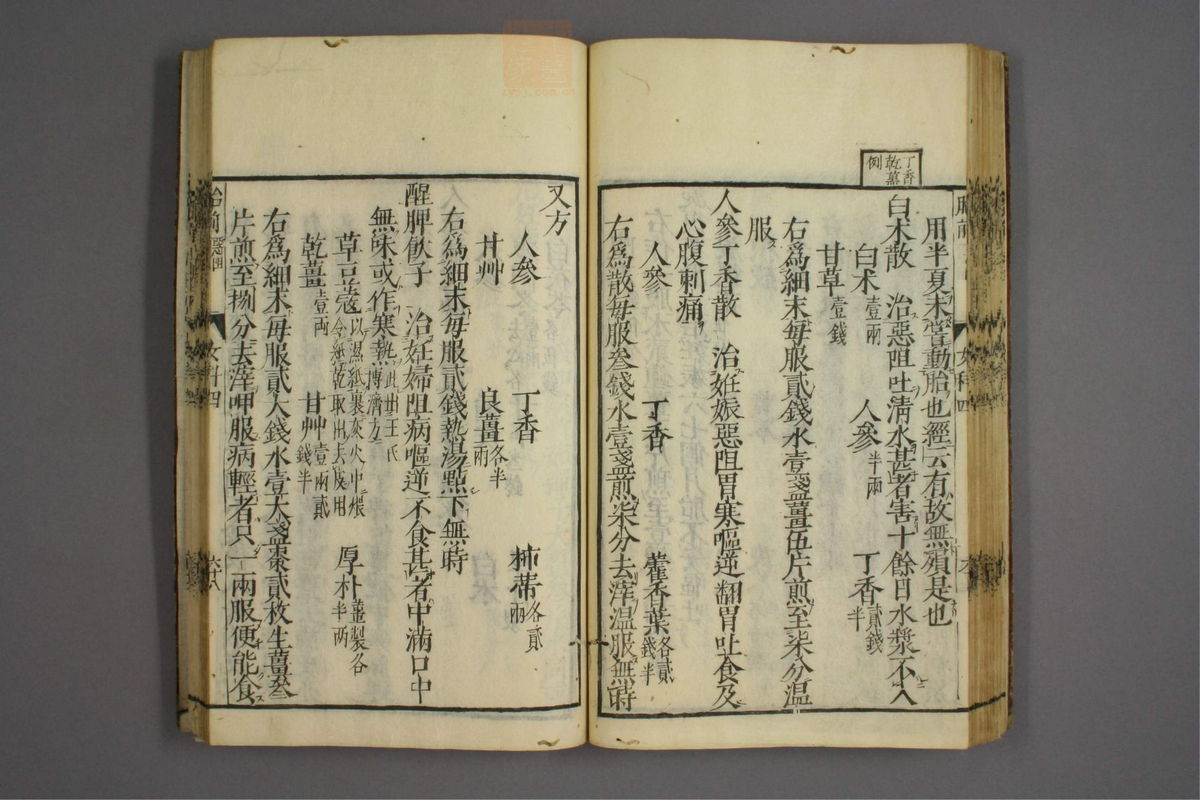 丁香
乾薑
例
用半夏末嘗動胎也經云有故無殞是也
白朮散　治惡阻吐清水甚者害十餘日水漿不入
白朮壹兩　人參半兩　丁香貳錢半
甘草壹錢
右爲細末每服貳錢水壹盞薑伍片煎至柒分温
服
人參丁香散　治姙娠惡阻胃寒嘔逆翻胃吐食及
心腹刺痛
人參　丁香　藿香葉各貳錢半
右爲散每服叁錢水壹盞煎柒分去滓温服無時
又方
人參　丁香　柿蔕各貳兩
甘艸　良薑各半兩
右爲細末每服貳錢熱湯點下無時
醒脾飲子　治姙婦阻病嘔逆不食甚者中滿口中
無味或作寒熱此出王氏博濟方
草豆蔻以濕紙裹灰火中煨令紙乾取出去皮用　厚朴薑製各半两
乾薑壹両　甘艸壹兩貳錢半
右爲細末每服貳大錢水壹大盞棗貳枚生薑叁
片煎至捌分去滓呷服病輕者只一兩服便能食
胎前
女科四
六八